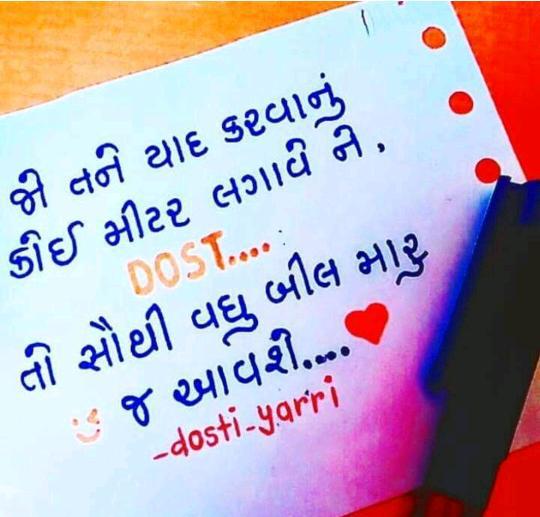 જો તને યાદ કરવાનું
કોઈ મીટર લગાવે ને,
DOST....
તો સૌથી વધુ બીલ મારુ
જ આવશે....
-dosti-yarri